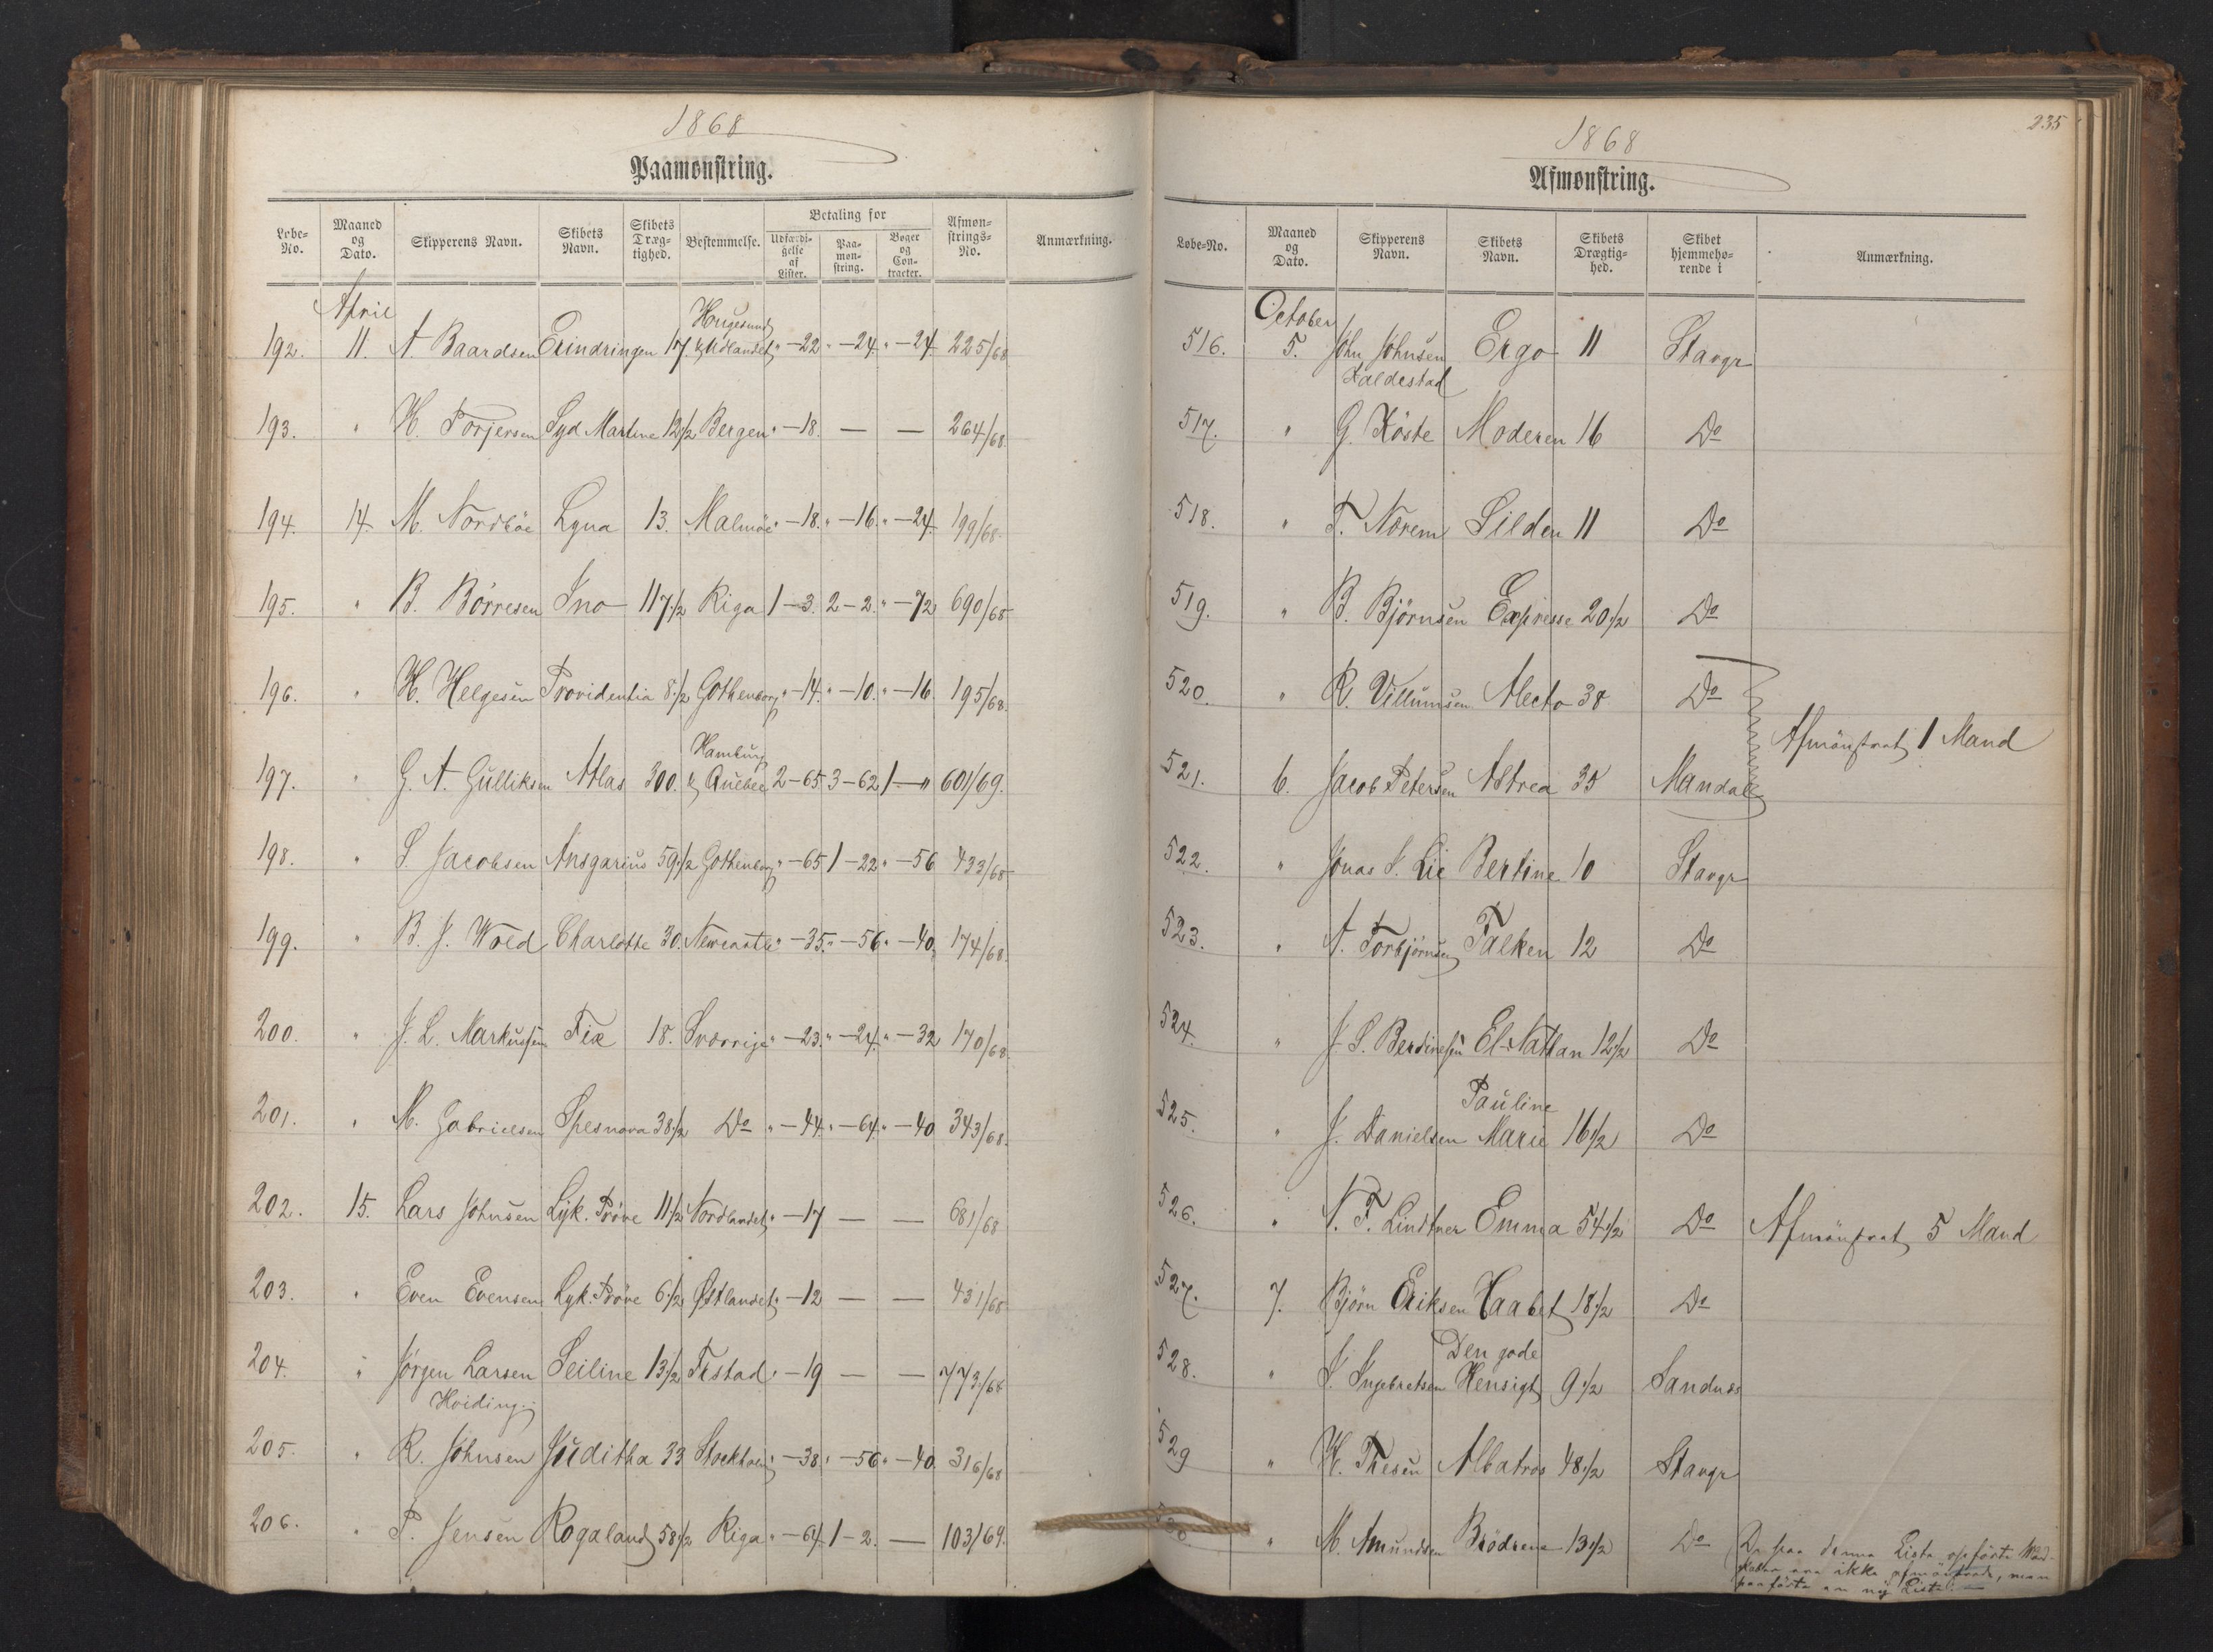 1868
Paamønstring.
Løbe-No. Maaned og Dato. Skipperens Navn. Skibets Navn. Skibets Dræg-tighed. Bestemmelse. Betaling for Udfærdi-gelse af Lister. Paa-møn-string. Bøger og Con-tracter. Afmøn-strings-No. Anmærkning.
April
192. 11. A. Baardsen Erindringen 17 Hougesund & Udlandet " - 22 " - 24 " - 24 225/68
193. " H. Torjersen Syd Martine 12 1/2 Bergen " - 18. — — 264/68
194. 14. M. Nordbøe Lyna 13. Malmöe " - 18. " - 16. " - 24. 199/68.
195. " B. Børresen Ino 117 1/2 Riga 1 - 3. 2 - 2. " - 72 690/68
196. " H. Helgesen Providentia 8 1/2 Gothenborg " - 14. " - 10. " - 16 195/68.
197. " G. A. Gulliksen Atlas 300. Hamburg & Quebec 2 - 65 3 - 62 1 - " 601/69.
198. " S. Jacobsen Ansgarius 59 1/2 Gothenborg " - 65 1 - 22 " - 56 433/68
199. " B. J. Wold Charlotte 30. Newcastle " - 35. " - 56 " - 40 174/68.
200. " J. L. Markussen Fix 18. Sverrige " - 23. " - 24. " - 32 170/68.
201. " M. Gabrielsen Spesnova 38 1/2 Do " - 44. " - 64. " - 40 343/68.
202. 15. Lars Johnsen Lyk. Prøve 11 1/2 Nordlandet " - 17 — — 681/68
203. " Even Evensen Lyk. Prøve 6 1/2 Østlandet " - 12 — — 431/68
204. " Jørgen Larsen Hviding Seiline 13 1/2 Tistad " - 19 — — 773/68
205. " R. Johnsen Juditha 33 Stockholm " - 38. " - 56 " - 40 316/68
206. " P. Jensen Rogaland 58 1/2 Riga " - 64. 1 - 2. — 103/69.
235
1868
Afmønstring.
Løbe-No. Maaned og Dato. Skipperens Navn. Skibets Navn. Skibets Drægtig-hed. Skibet hjemmehø-rende i Anmærkning.
October
516. 5. John Johnsen Haldestad Ergo 11 Stavgr
517. " G. Køste Moderen 16 Do
518. " T. Nørem Silden 11 Do
519. " B. Bjørnsen Expresse 20 1/2 Do
520. " R. Villumsen Alecto 38 Do
Afmönstrat 1 Mand
521. 6. Jacob Petersen Astrea 35 Mandal
522. " Jonas S. Lie Bertine 10 Stavgr
523. " A. Torbjørnsen Falken 12 Do
524. " J. S. Berdinesen El-Nathan 12 1/2 Do
525. " J. Danielsen Pauline Marie 16 1/2 Do
526. " N. F. Lindtner Emma 54 1/2 Do Afmönstrat 5 Mand
527. 7. Bjørn Eriksen Haabet 18 1/2 Do
528. " S. Ingebretsen Den gode Hensigt 9 1/2 Sandnæs
529 " H. Thesen Albatros 48 1/2 Stavgr
530. " M. Amundsen Brødrene 13 1/2 Do De paa denna Lista opförte Mand-
ikke afmönstrade, men
paaförte en ny Liste. —